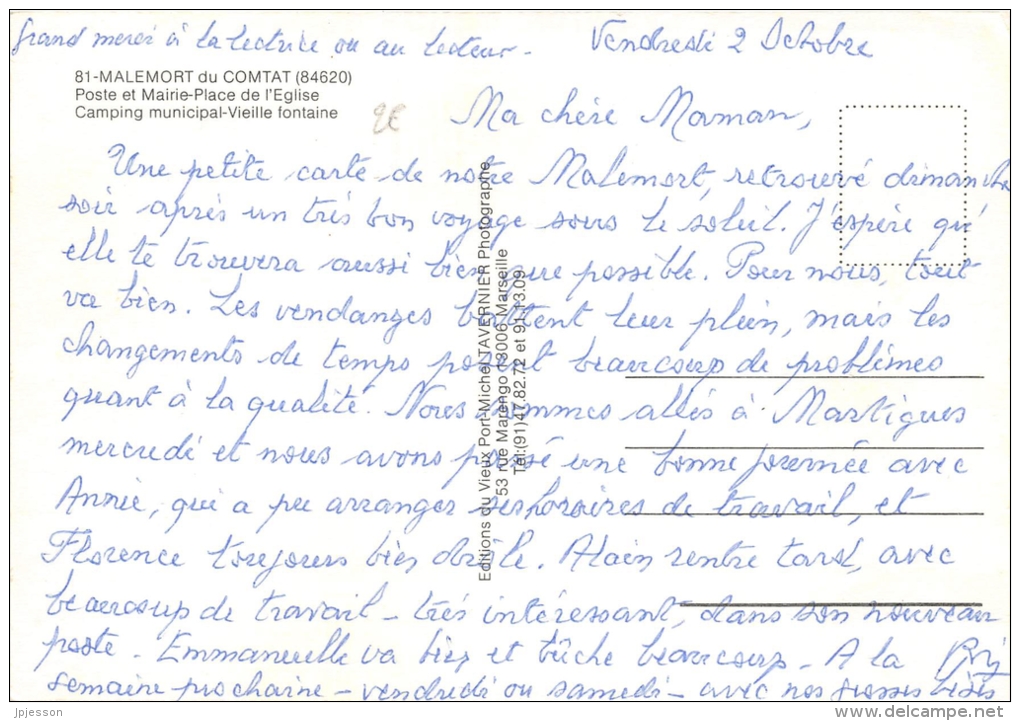 Grand merci à la lectrice ou au lecteur -
Vendredi 2 Octobre
81-MALEMORT du COMTAT (84620)
Poste et Mairie-Place de l'Eglise
Camping municipal-Vieille fontaine
2€
Ma chère Maman,
Une petite carte de notre Malemort, retrouvé dimanche
soir après un très bon voyage sous le soleil. J'espère qu'
elle te trouvera aussi bien que possible. Pour nous, tout
va bien. Les vendanges battent leur plein, mais les
changements de temps posent beaucoup de problèmes
quant à la qualité. Nous sommes allés à Martigues
mercredi et nous avons passé une bonne journée avec
Annie, qui a pu arranger ses horaires de travail, et
Florence toujours bien drôle. Alain rentre tard, avec
beaucoup de travail - très intéressant, dans son nouveau
poste - Emmanuelle va bien et bûche beaucoup - A la
semaine prochaine - vendredi ou samedi - avec nos grosses bises
Editions du Vieux Port-Michel TAVERNIER Photographe
53 rue Marengo 13006 Marseille
Tél:(91)47.82.72 et 91.13.09
jpjesson
delcampe.net